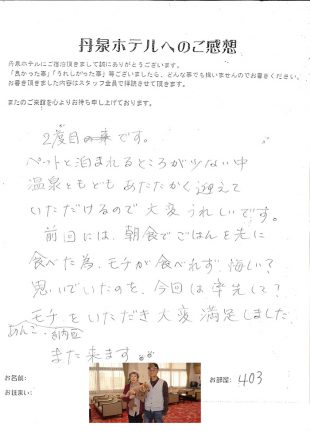 丹泉ホテルへのご感想
丹泉ホテルにご宿泊頂きまして誠にありがとうございます。
「良かった事」「うれしかった事」等ございましたら、どんな事でも構いませんのでお書きください。
お書き頂きました内容はスタッフ全員で拝読させて頂きます。
またのご来館を心よりお待ち申し上げております。
2度目です。
ペットと泊まれるところが少ない中
温泉ともどもあたたかく迎えて
いただけるので大変うれしいです。
前回には、朝食でごはんを先に
食べた為、モチが食べれず悔しい?
思いでいたのを、今回は率先して?
モチをいただき大変満足しました
あんこ、納豆
また来ます。
お名前: お部屋: 403
お住まい: